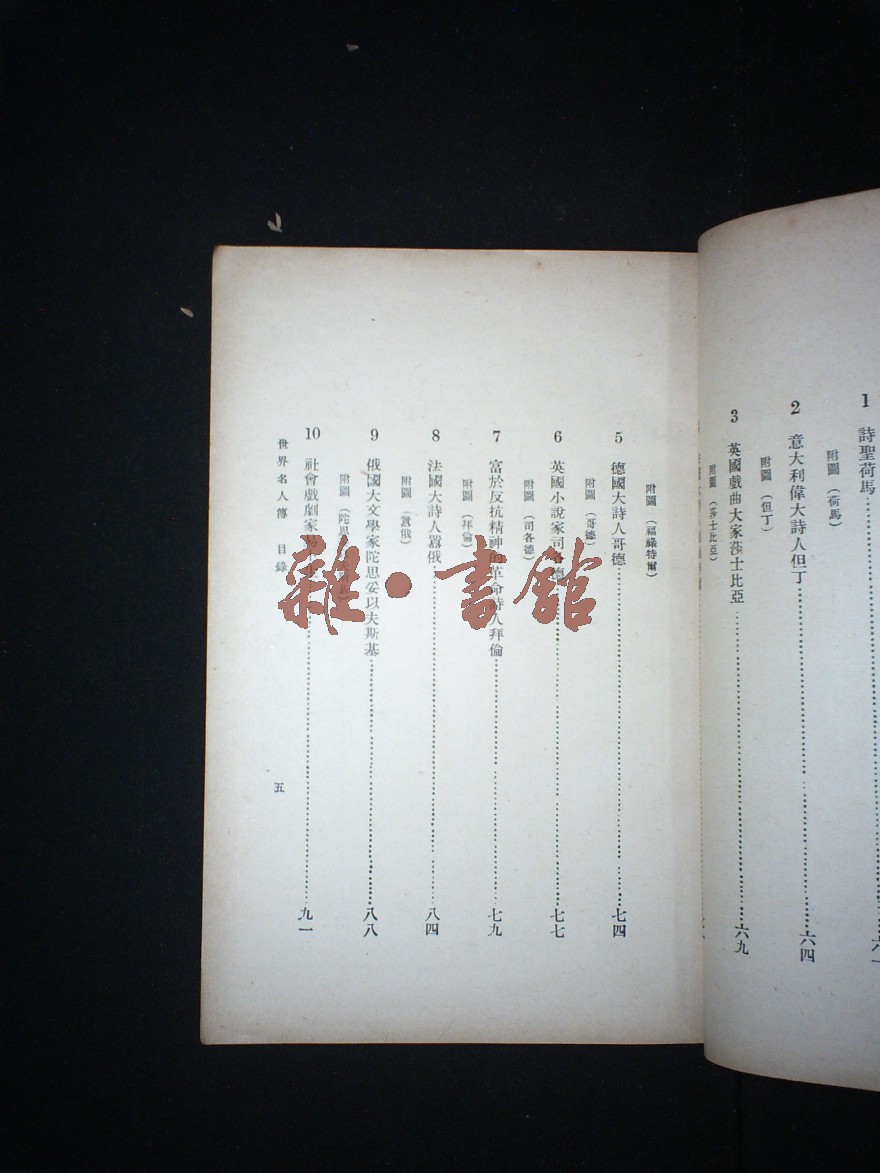 1 詩聖荷馬
附圖（荷馬）
2 意大利偉大詩人但丁 六四
附圖（但丁）
3 英國戲曲大家莎士比亞 六九
附圖（莎士比亞）
附圖（福祿特爾）
5 德國大詩人哥德 七四
附圖（哥德）
6 英國小說家司各德 七七
附圖（司各德）
7 富於反抗精神的革命詩人拜倫 七九
附圖（拜倫）
8 法國大詩人囂俄 八四
附圖（囂俄）
9 俄國大文學家陀思妥以夫斯基 八八
附圖（陀思
10 社會戲劇家易卜生 九一
世界名人傳 目錄 五
雜·書館